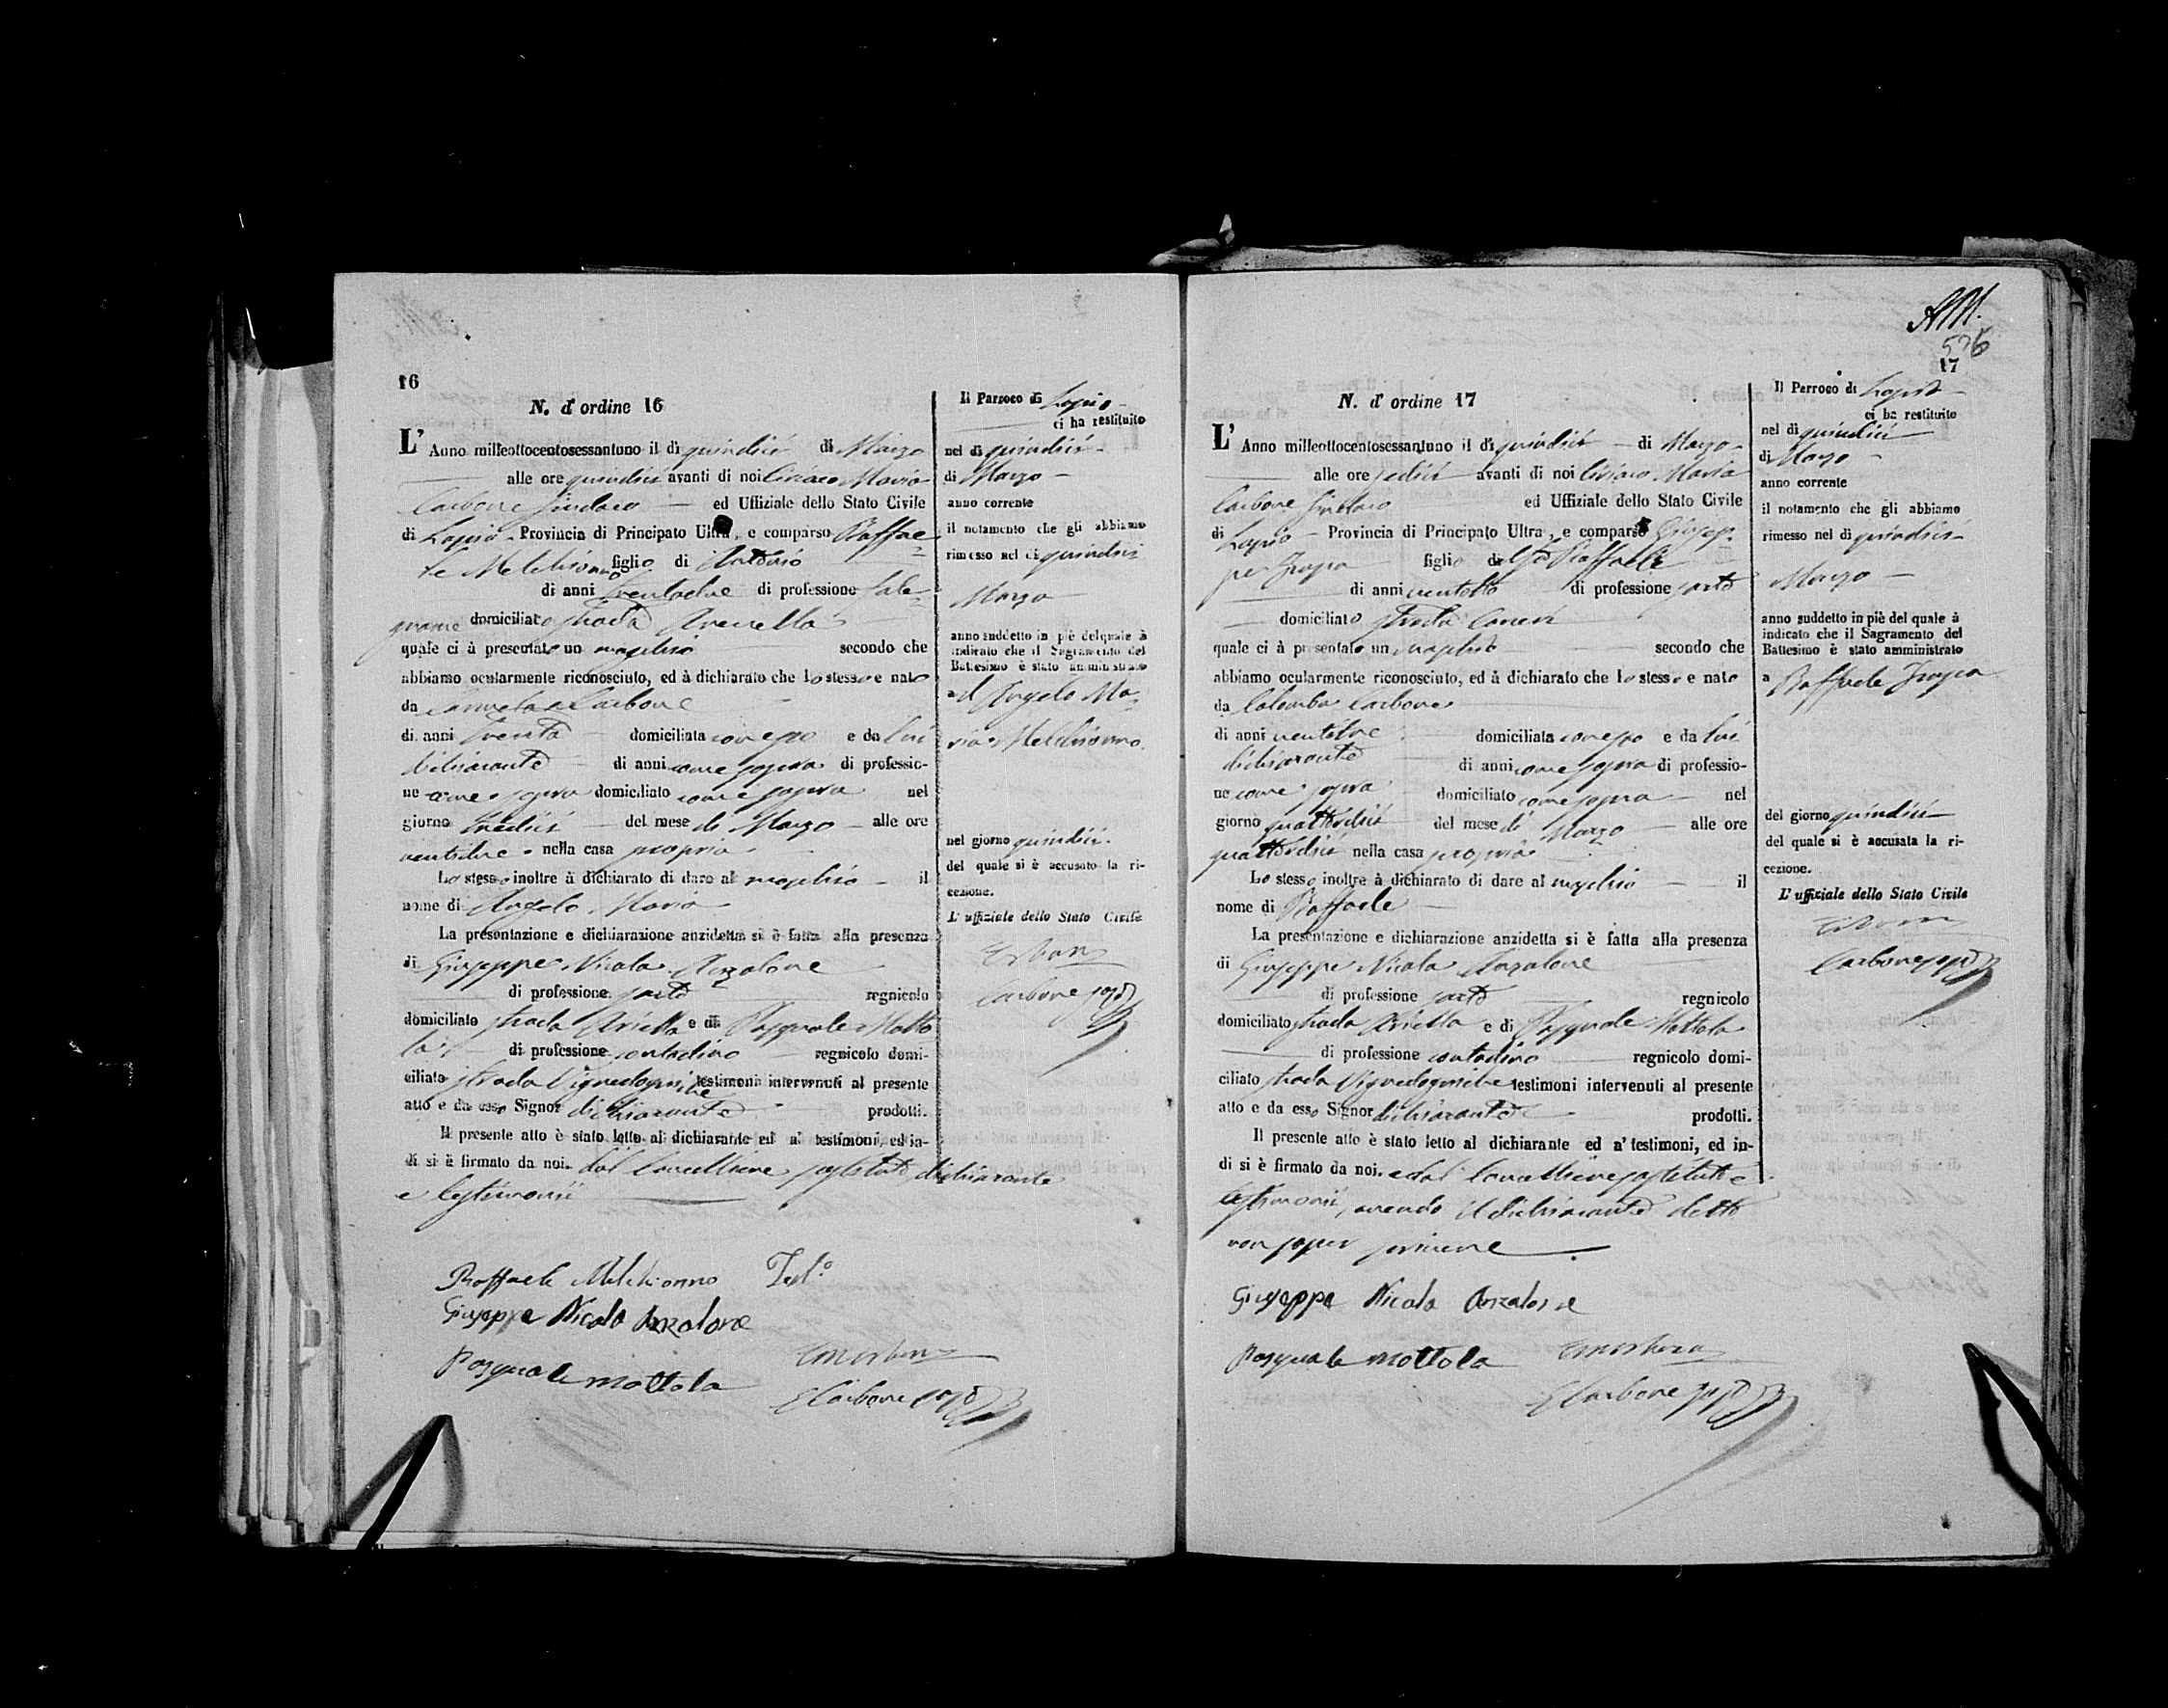 16
N. d' ordine 16
L' Anno milleottocentosessantuno il dì quindici di Marzo
alle ore quindici avanti di noi Ciriaco Maria
Carbone Sindaco ed Uffiziale dello Stato Civile
di Lapio Provincia di Principato Ultra, e comparso Raffae=
le Melchionno figlio di Antonio
di anni trentadue di professione fale=
gname domiciliato strada Arenella
quale ci à presentato un maschio secondo che
abbiamo ocularmente riconosciuto, ed à dichiarato che lo stesso e nato
da Carbone
di anni trenta domiciliata con esso e da lui
dichiarante di anni come sopra di professio-
ne come sopra domiciliato come sopra nel
giorno tredici del mese di Marzo alle ore
ventidue nella casa propria
Lo stesso inoltre à dichiarato di dare al maschio il
nome di Angelo Maria
La presentazione e dichiarazione anzidetta si è fatta alla presenza
di Giuseppe Nicola Anzalone
di professione sarto regnicolo
domiciliato strada Ariella e di Pasquale Motto
la di professione contadino regnicolo domi-
ciliato strada testimoni intervenuti al presente
atto e da esso Signor dichiarante prodotti.
Il presente atto è stato letto al dichiarante ed a' testimoni, ed in-
di si è firmato da noi. dal Cancelliere sostituto dichiarante
e testimonii
Raffaele Melchionno
Giuseppe Nicola Anzalone
Pasquale Mottola
Carbone
Il Parroco di Lapio
ci ha restituito
nel dì quindici
di Marzo
anno corrente
il notamento che gli abbiamo
rimesso nel dì quindici
Marzo
anno suddetto in piè del quale à
indicato che il Sagramento del
Battesimo è stato amministrato
ad Angelo Ma=
ria Melchionno
nel giorno quindici
del quale si è accusato la ri-
cezione.
L' uffiziale dello Stato Civile
Carbone
AM.
576
17
N. d' ordine 17
L' Anno milleottocentosessantuno il dì quindici di Marzo
alle ore sedici avanti di noi Ciriaco Maria
Carbone Sindaco ed Uffiziale dello Stato Civile
di Lapio Provincia di Principato Ultra, e comparso Giusep=
pe figlio di Raffaele
di anni ventotto di professione sarto
domiciliato strada
quale ci à presentato un maschio secondo che
abbiamo ocularmente riconosciuto, ed à dichiarato che lo stesso e nato
da Colomba Carbone
di anni ventitre domiciliata con esso e da lui
dichiarante di anni come sopra di professio-
ne come sopra domiciliato come sopra nel
giorno quattordici del mese di Marzo alle ore
quattordici nella casa propria
Lo stesso inoltre à dichiarato di dare al maschio il
nome di Raffaele
La presentazione e dichiarazione anzidetta si è fatta alla presenza
di Giuseppe Nicola Anzalone
di professione sarto regnicolo
domiciliato strada Ariella e di Pasquale Mottola
di professione contadino regnicolo domi-
ciliato strada testimoni intervenuti al presente
atto e da esso Signor dichiarante prodotti.
Il presente atto è stato letto al dichiarante ed a' testimoni, ed in-
di si è firmato da noi. e dal Cancelliere sostituto e
testimonii, avendo il dichiarante detto
non saper scrivere.
Giuseppe Nicola Anzalone
Pasquale Mottola
Carbone
Il Parroco di Lapio
ci ha restituito
nel dì quindici
di Marzo
anno corrente
il notamento che gli abbiamo
rimesso nel dì quindici
Marzo
anno suddetto in piè del quale à
indicato che il Sagramento del
Battesimo è stato amministrato
a Raffaele
del giorno quindici
del quale si è accusata la ri-
cezione.
L' ufficiale dello Stato Civile
Carbone